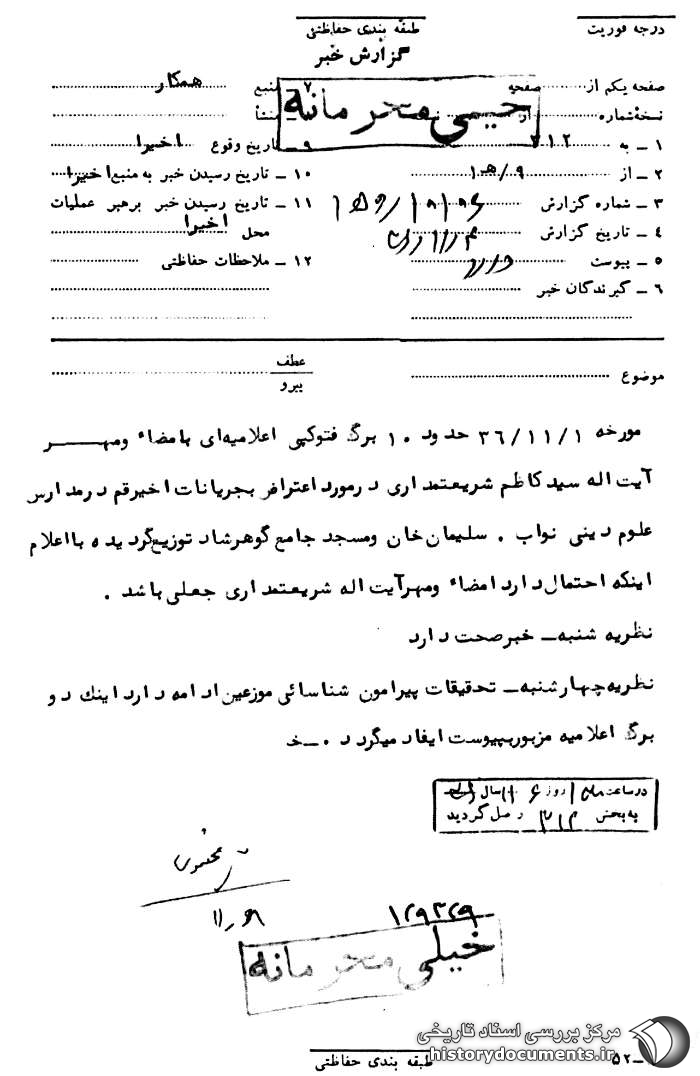 درجه فوریت
طبقه بندی حفاظتی
گزارش خبر
صفحه یکم از صفحه
نسخهٔ شماره از
۱ ـ به ۳۱۲
۲ ـ از ۹/هـ ۱
۳ ـ شماره گزارش
۴ ـ تاریخ گزارش
۵ ـ پیوست دارد
۶ ـ گیرندگان خبر
۷ منبع همکار
منشأ
۹ ـ تاریخ وقوع اخیرا
۱۰ ـ تاریخ رسیدن خبر به منبع اخیرا
۱۱ ـ تاریخ رسیدن خبر برهبر عملیات
محل اخیرا
۱۲ ـ ملاحظات حفاظتی
خیلی محرمانه
موضوع
عطف
پیرو
مورخه ۳۶/۱۱/۱ حدود ۱۰ برگ فتوکپی اعلامیه‌ای بامضاء ومهر
آیت اله سید کاظم شریعتمداری در مورد اعتراض بجریانات اخیر قم در مدارس
علوم دینی نواب . سلیمان خان ومسجد جامع گوهرشاد توزیع گردیده با اعلام
اینکه احتمال دارد امضاء ومهر آیت اله شریعتمداری جعلی باشد .
نظریه شنبه ـ خبر صحت دارد
نظریه چهارشنبه ـ تحقیقات پیرامون شناسائی موزعین ادامه دارد اینك دو
برگ اعلامیه مزبور بپیوست ایفاد میگردد ۰ ـ خ
در ساعت روز سال
به بخش ۳۱۲ وصل گردید
۱۲۹۳۲۹
خیلی محرمانه
مرکز بررسی اسناد تاریخی
historydocuments.ir
طبقه بندی حفاظتی
۵۲ ـ